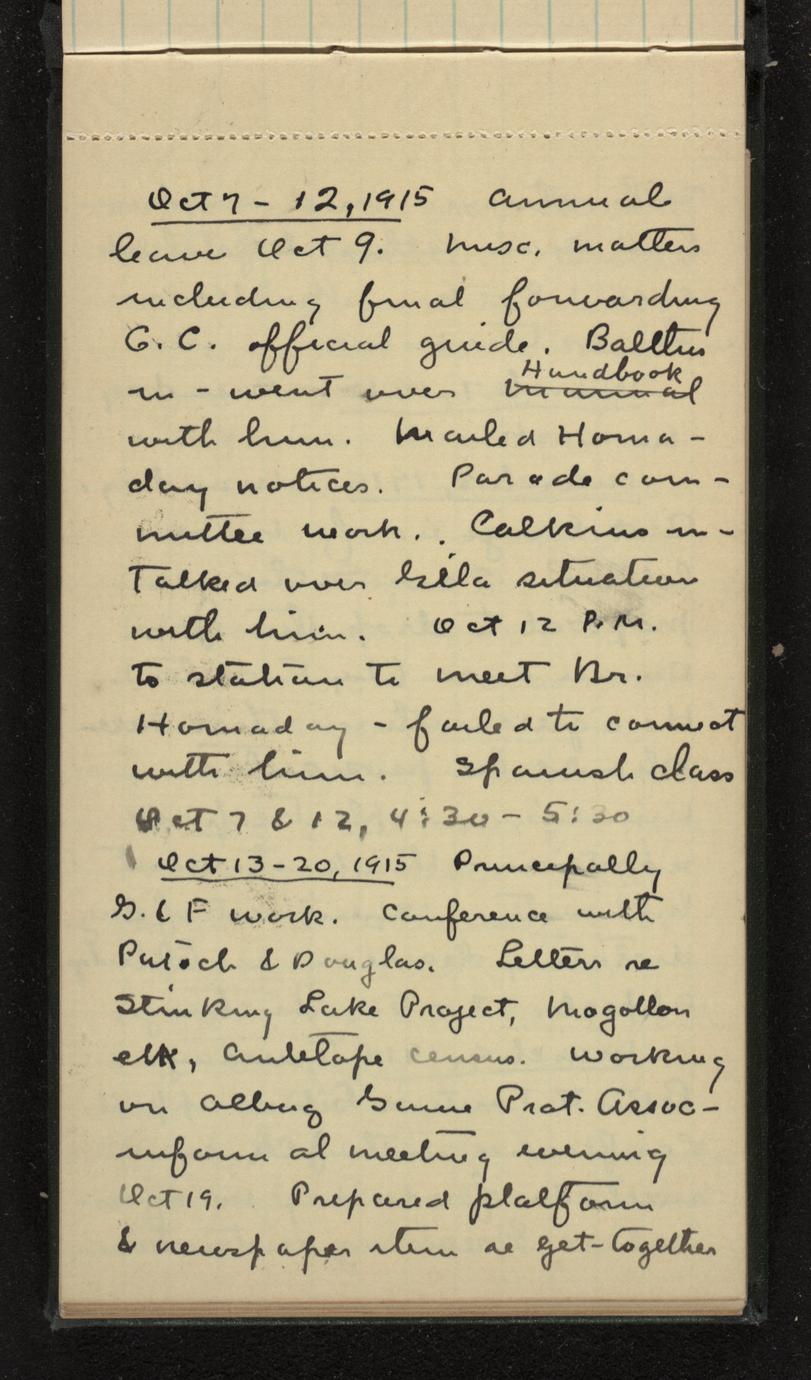 Oct 7 - 12, 1915 Annual
leave Oct 9. Misc. matters
including final forwarding
G.C. official guide. Balthis
in - went over Manual Handbook
with him. Mailed Horna-
day notices. Parade com-
mittee work. Calkins in -
Talked over Gila situation
with him. Oct 12 P.M.
to station to meet Dr.
Hornaday - failed to connect
with him. Spanish class
Oct 7 & 12, 4:30 - 5:30
Oct 13-20, 1915 Principally
G. & F work. Conference with
& Douglas. Letters re
Stinking Lake Project, Mogollon
elk, Antelope census. Working
on Albuq Game Prot. Assoc -
informal meeting evening
Oct 19. Prepared platform
& newspaper item re get-together